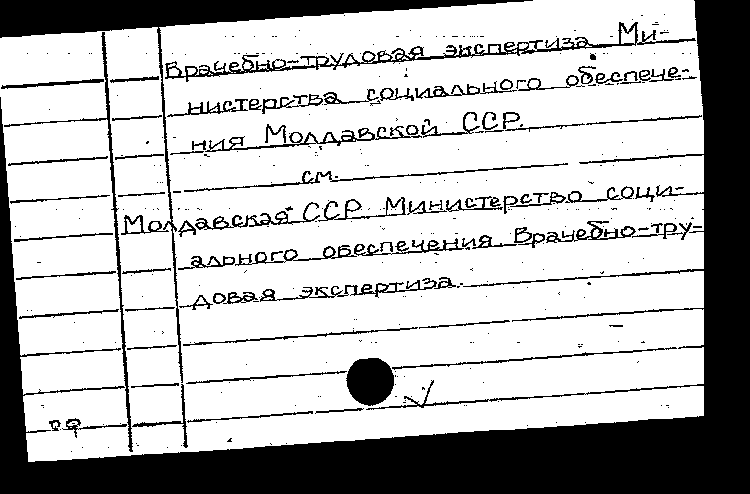 Врачебно-трудовая экспертиза Ми-
нистерства социального обеспече-
ния Молдавской ССР.
см.
Молдавская ССР Министерство соци-
ального обеспечения. Врачебно-тру-
довая экспертиза.